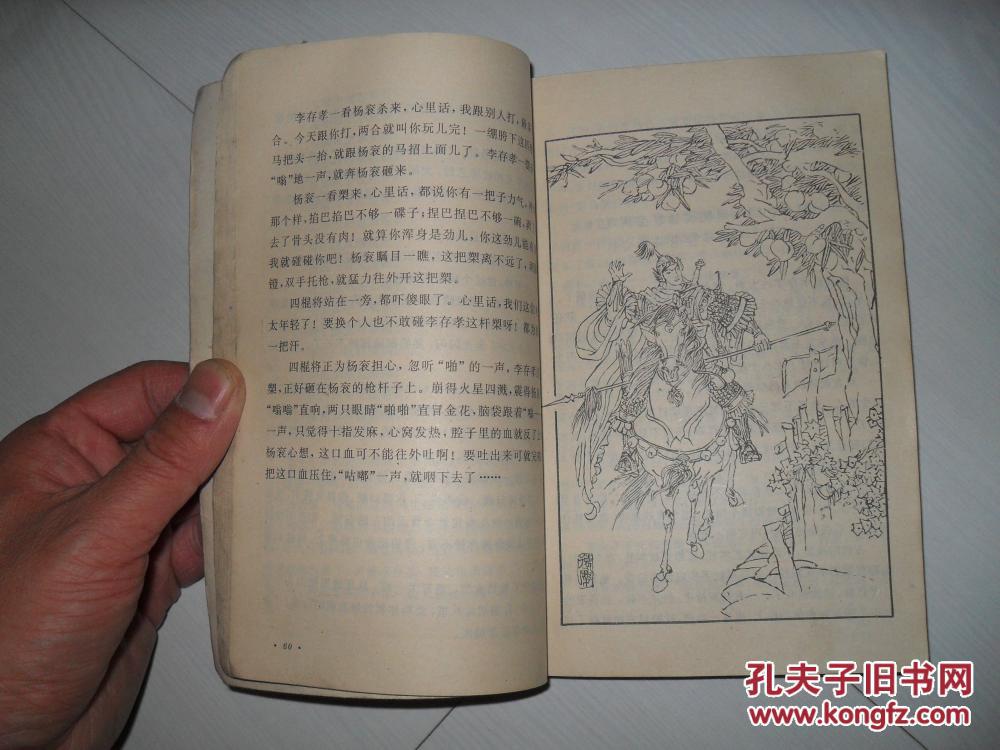 李存孝一看杨衮杀来，心里话，我跟别人打，
合。今天跟你打，两合就叫你玩儿完！一绷胯下这匹
马把头一抬，就跟杨衮的马招上面儿了。李存孝一
“嗡”地一声，就奔杨衮砸来。
杨衮一看槊来，心里话，都说你有一把子力气，
那个样，掐巴掐巴不够一碟子；捏巴捏巴不够一碗，
去了骨头没有肉！就算你浑身是劲儿，你这劲儿能
我就碰碰你吧！杨衮瞩目一瞧，这把槊离不远了，
镫，双手托枪，就猛力往外开这把槊。
四棍将站在一旁，都吓傻眼了。心里话，我们这
太年轻了！要换个人也不敢碰李存孝这杆槊呀！都为
一把汗。
四棍将正为杨衮担心，忽听“啪”的一声，李存孝
槊，正好砸在杨衮的枪杆子上。崩得火星四溅，震得
“嗡嗡”直响，两只眼睛“啪啪”直冒金花，脑袋跟着“嗡
一声，只觉得十指发麻，心窝发热，腔子里的血就反了
杨衮心想，这口血可不能往外吐啊！要吐出来可就完
把这口血压住，“咕嘟”一声，就咽下去了……
·60·
孔夫子旧书网
www.kongfz.com